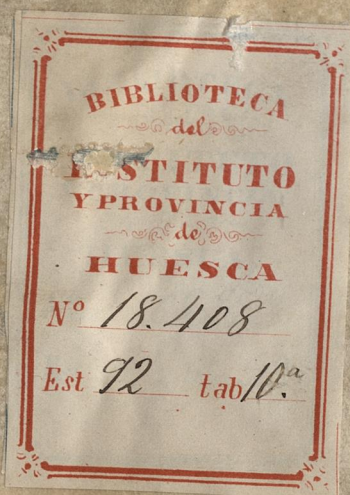 BIBLIOTECA
del
INSTITUTO
Y PROVINCIA
de
HUESCA
Nº 18.408
Est 92 tab 10.ª